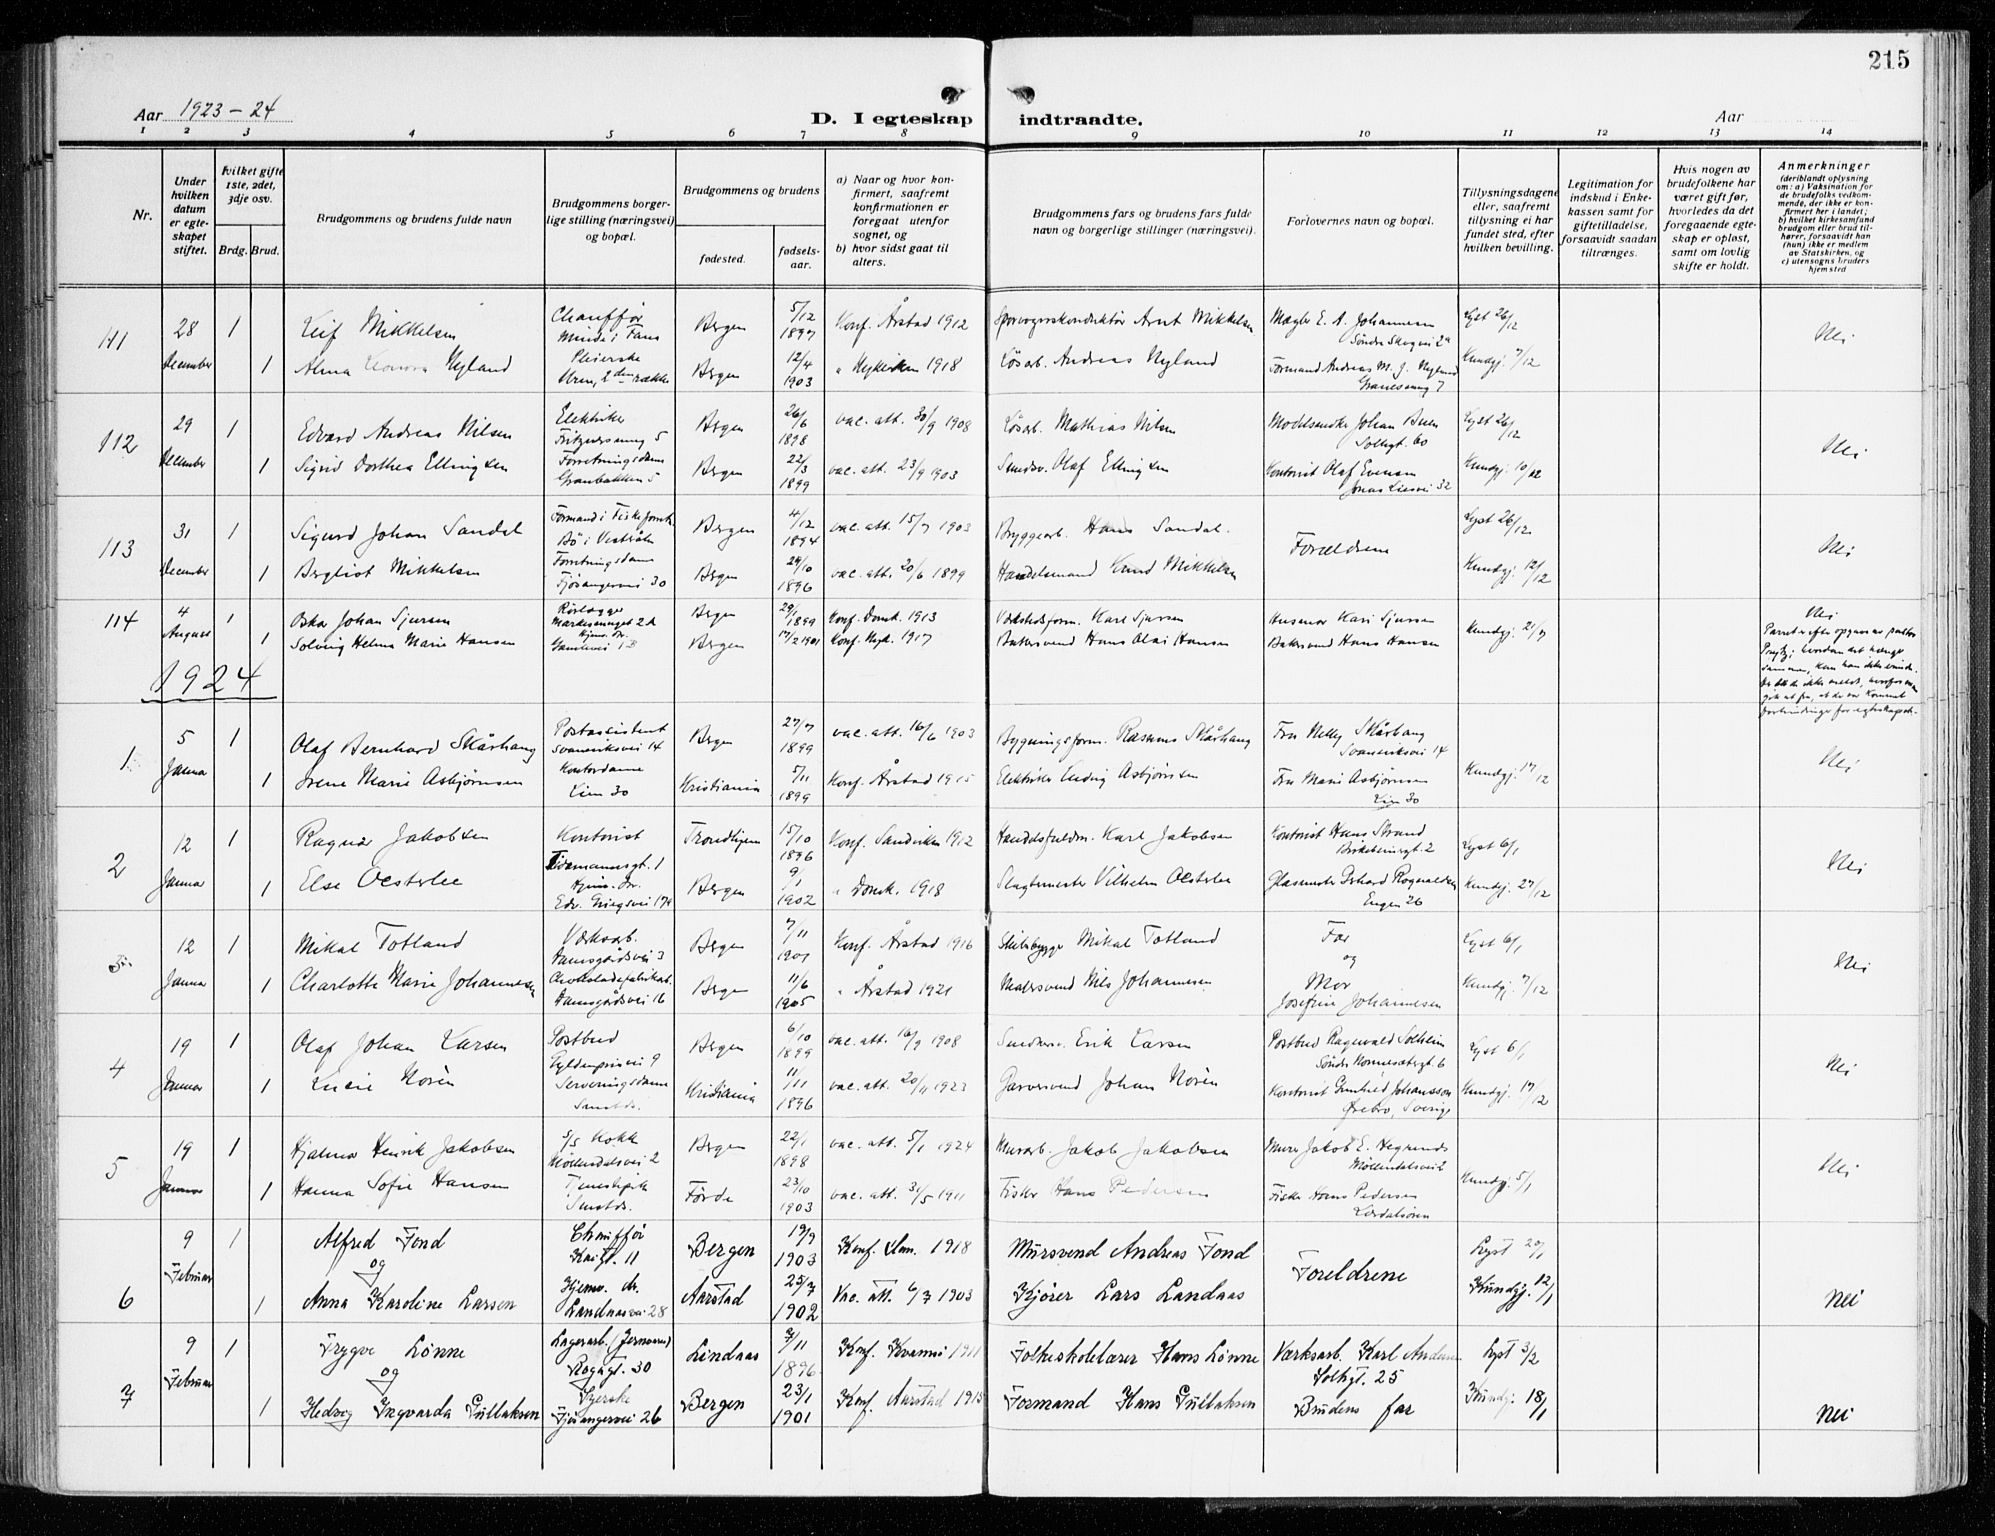 215
Aar 1923 - 24
D. I egteskap indtraadte.
Aar
1 2 3 4 5 6 7 8 9 10 11 12 13 14
Nr.
Under hvilken datum er egteskapet stiftet.
Hvilket gifte 1ste, 2det, 3dje osv.
Brdg. Brud.
Brudgommens og brudens fulde navn
Brudgommens borgerlige stilling (næringsvei) og bopæl.
Brudgommens og brudens
fødested.
fødselsaar.
a) Naar og hvor konfirmert, saafremt konfirmationen er foregaat utenfor sognet, og
b) hvor sidst gaat til alters.
Brudgommens fars og brudens fars fulde navn og borgerlige stillinger (næringsvei).
Forlovernes navn og bopæl.
Tillysningsdagene eller, saafremt tillysning ei har fundet sted, efter hvilken bevilling.
Legitimation for indskud i Enkekassen samt for giftetilladelse, forsaavidt saadan tiltrænges.
Hvis nogen av brudefolkene har været gift før, hvorledes da det foregaaende egteskap er opløst, samt om lovlig skifte er holdt.
Anmerkninger
(deriblandt oplysning om: a) Vaksination for de brudefolks vedkommende, der ikke er konfirmert her i landet; b) hvilket kirkesamfund brudgom eller brud tilhører, forsaavidt han (hun) ikke er medlem av Statskirken, og c) utensogns bruders hjemsted
111 28 1 Leif Mikkelsen Chauffør Minde i Fana Bergen 5/12 1897 Konf. Årstad 1912 Sporvognskonduktør Arnt Mikkelsen Mægler E. A. Johannesen Søndre Skogvei 2a Lyst 26/12 Nei
December 1 Alma Leonora Nyland Pleierske Uren, 2den række Bergen 12/4 1903 " Nykirken 1918 Løsarb. Andreas Nyland Formand Andreas M. J. Nyland 7 Kundgj. 7/12
112 29 1 Edvard Andreas Nilsen Elektriker 5 Bergen 26/6 1898 vac. att. 30/9 1908 Løsarb. Mathias Nilsen Modelsnedker Johan Solhgt. 60 Lyst 26/12 Nei
December 1 Sigrid Dorthea Ellingsen Forretningsdame Granbakken 5 Bergen 22/3 1899 vac. att. 23/9 1903 Smedsv. Olaf Ellingsen Kontorist Olaf Evensen Jonas Liesvei 32 Kundgj. 10/12
113 31 1 Sigurd Johan Sandal Formand i Bø i Vesterålen Bergen 4/12 1894 vac. att. 15/7 1903 Bryggearb. Hans Sandal. Forældrene Lyst 26/12 Nei
December 1 Bergliot Mikkelsen Forretningsdame Fjøsangervei 30 Bergen 28/10 1896 vac. att. 20/6 1899 Handelsmand Knud Mikkelsen Kundgj. 12/12
114 4 1 Johan Sjursen Rørlægger Markesmuget 2a Bergen 29/1 1899 Konf. Domk. 1913 Værkstedsform. Karl Sjursen Husmor Kari Sjursen Kundgj. 21/7 Nei
August 1 Solveig Helena Marie Hansen Hjemv. dr. Bergen 17/2 1901 Konf. Nyk. 1917 Bakersvend Hans Olai Hansen Bakersvend Hans Hansen
1924
1 5 1 Olaf Bernhard Skårhaug Postassistent Svaneviksvei 14 Bergen 27/7 1899 vac. att. 16/6 1903 Bygningsform. Rasmus Skårhaug Fru Nelly Skårhaug Svaneviksvei 14 Nei
Januar 1 Irene Marie Asbjørnsen Kontordame Lien 30 Kristiania 5/11 1899 Konf. Årstad 1915 Elektriker Ludvig Asbjørnsen Fru Marie Asbjørnsen Lien 30 Kundgj. 17/12
2 12 1 Ragnar Jakobsen Kontorist Tidemannsgt. 1 Trondhjem 15/10 1896 Konf. Sandviken 1912 Handelsfuldm. Karl Jakobsen Kontorist Hans Strand Birkebeinergt. 2 Lyst 6/1 Nei
Januar 1 Else Oesterlee Hjemv. dr. Edv. Griegsvei 17a Bergen 9/1 1902 " Domk. 1918 Slagtermester Vilhelm Oesterlee Glasmester Gerhard Rognaldsen Engen 26 Kundgj. 27/12
3 12 1 Mikal Totland Værksarb. Damsgårdsvei 3 Bergen 7/11 1901 Konf. Årstad 1916 Skibsbygger Mikal Totland Far og Lyst 6/1 Nei
Januar 1 Charlotte Marie Johannesen Chokoladefabrikarb. Damsgårdsvei 16 Bergen 11/6 1905 " Årstad 1921 Malersvend Nils Johannesen Mor Josefine Johannesen Kundgj. 7/12
4 19 1 Olaf Johan Larsen Postbud Gyldenprisvei 9 Bergen 6/10 1899 vac. att. 16/9 1908 Smedsv. Erik Larsen Postbud Ragnvald Solheim Søndre Nonnesætergt. 6 Lyst 6/1 Nei
Januar 1 Lucie Norén Serveringsdame Smstds. Kristiania 11/11 1896 vac. att. 20/11 1923 Garversvend Johan Norén Kontorist Gunhild Johansson Ørebro, Sverige Kundgj. 17/12
5 19 1 Hjalmar Henrik Jakobsen S/S Kokk Møllendalsvei 2 Bergen 22/1 1898 vac. att. 5/1 1924 Murarb. Jakob Jakobsen Murer Jakob E. Møllendalsvei 2 Nei
Januar 1 Hanna Sofie Hansen Tjenestepike Smstds. Førde 23/10 1903 vac. att. 31/5 1911 Fisker Hans Pedersen Fisker Hans Pedersen Lærdalsøren Kundgj. 5/1
6 9 1 Alfred Fond Chauffør 11 Bergen 19/9 1903 Konf. 1918 Mursvend Andreas Fond Foreldrene Lyst 20/1
og
Februar 1 Anna Karoline Larsen Hjemv. dr. Landaasvei 28 Aarstad 25/7 1902 Vac. att. 6/7 1903 Kjører Lars Landaas Kundgj. 12/1 Nei
7 9 1 Trygve Lønne Lagerarb. 30 Lindaas 7/11 1896 Konf. 1911 Folkeskolelærer Hans Lønne Værksarb. Karl Andersen Solhgt. 25 Lyst 3/2
og
Februar 1 Hedvig Ingvarda Gullaksen Syerske Fjøsangervei 26 Bergen 23/1 1901 Konf. Aarstad 1915 Formand Hans Gullaksen Brudens far Kundgj. 18/1 Nei